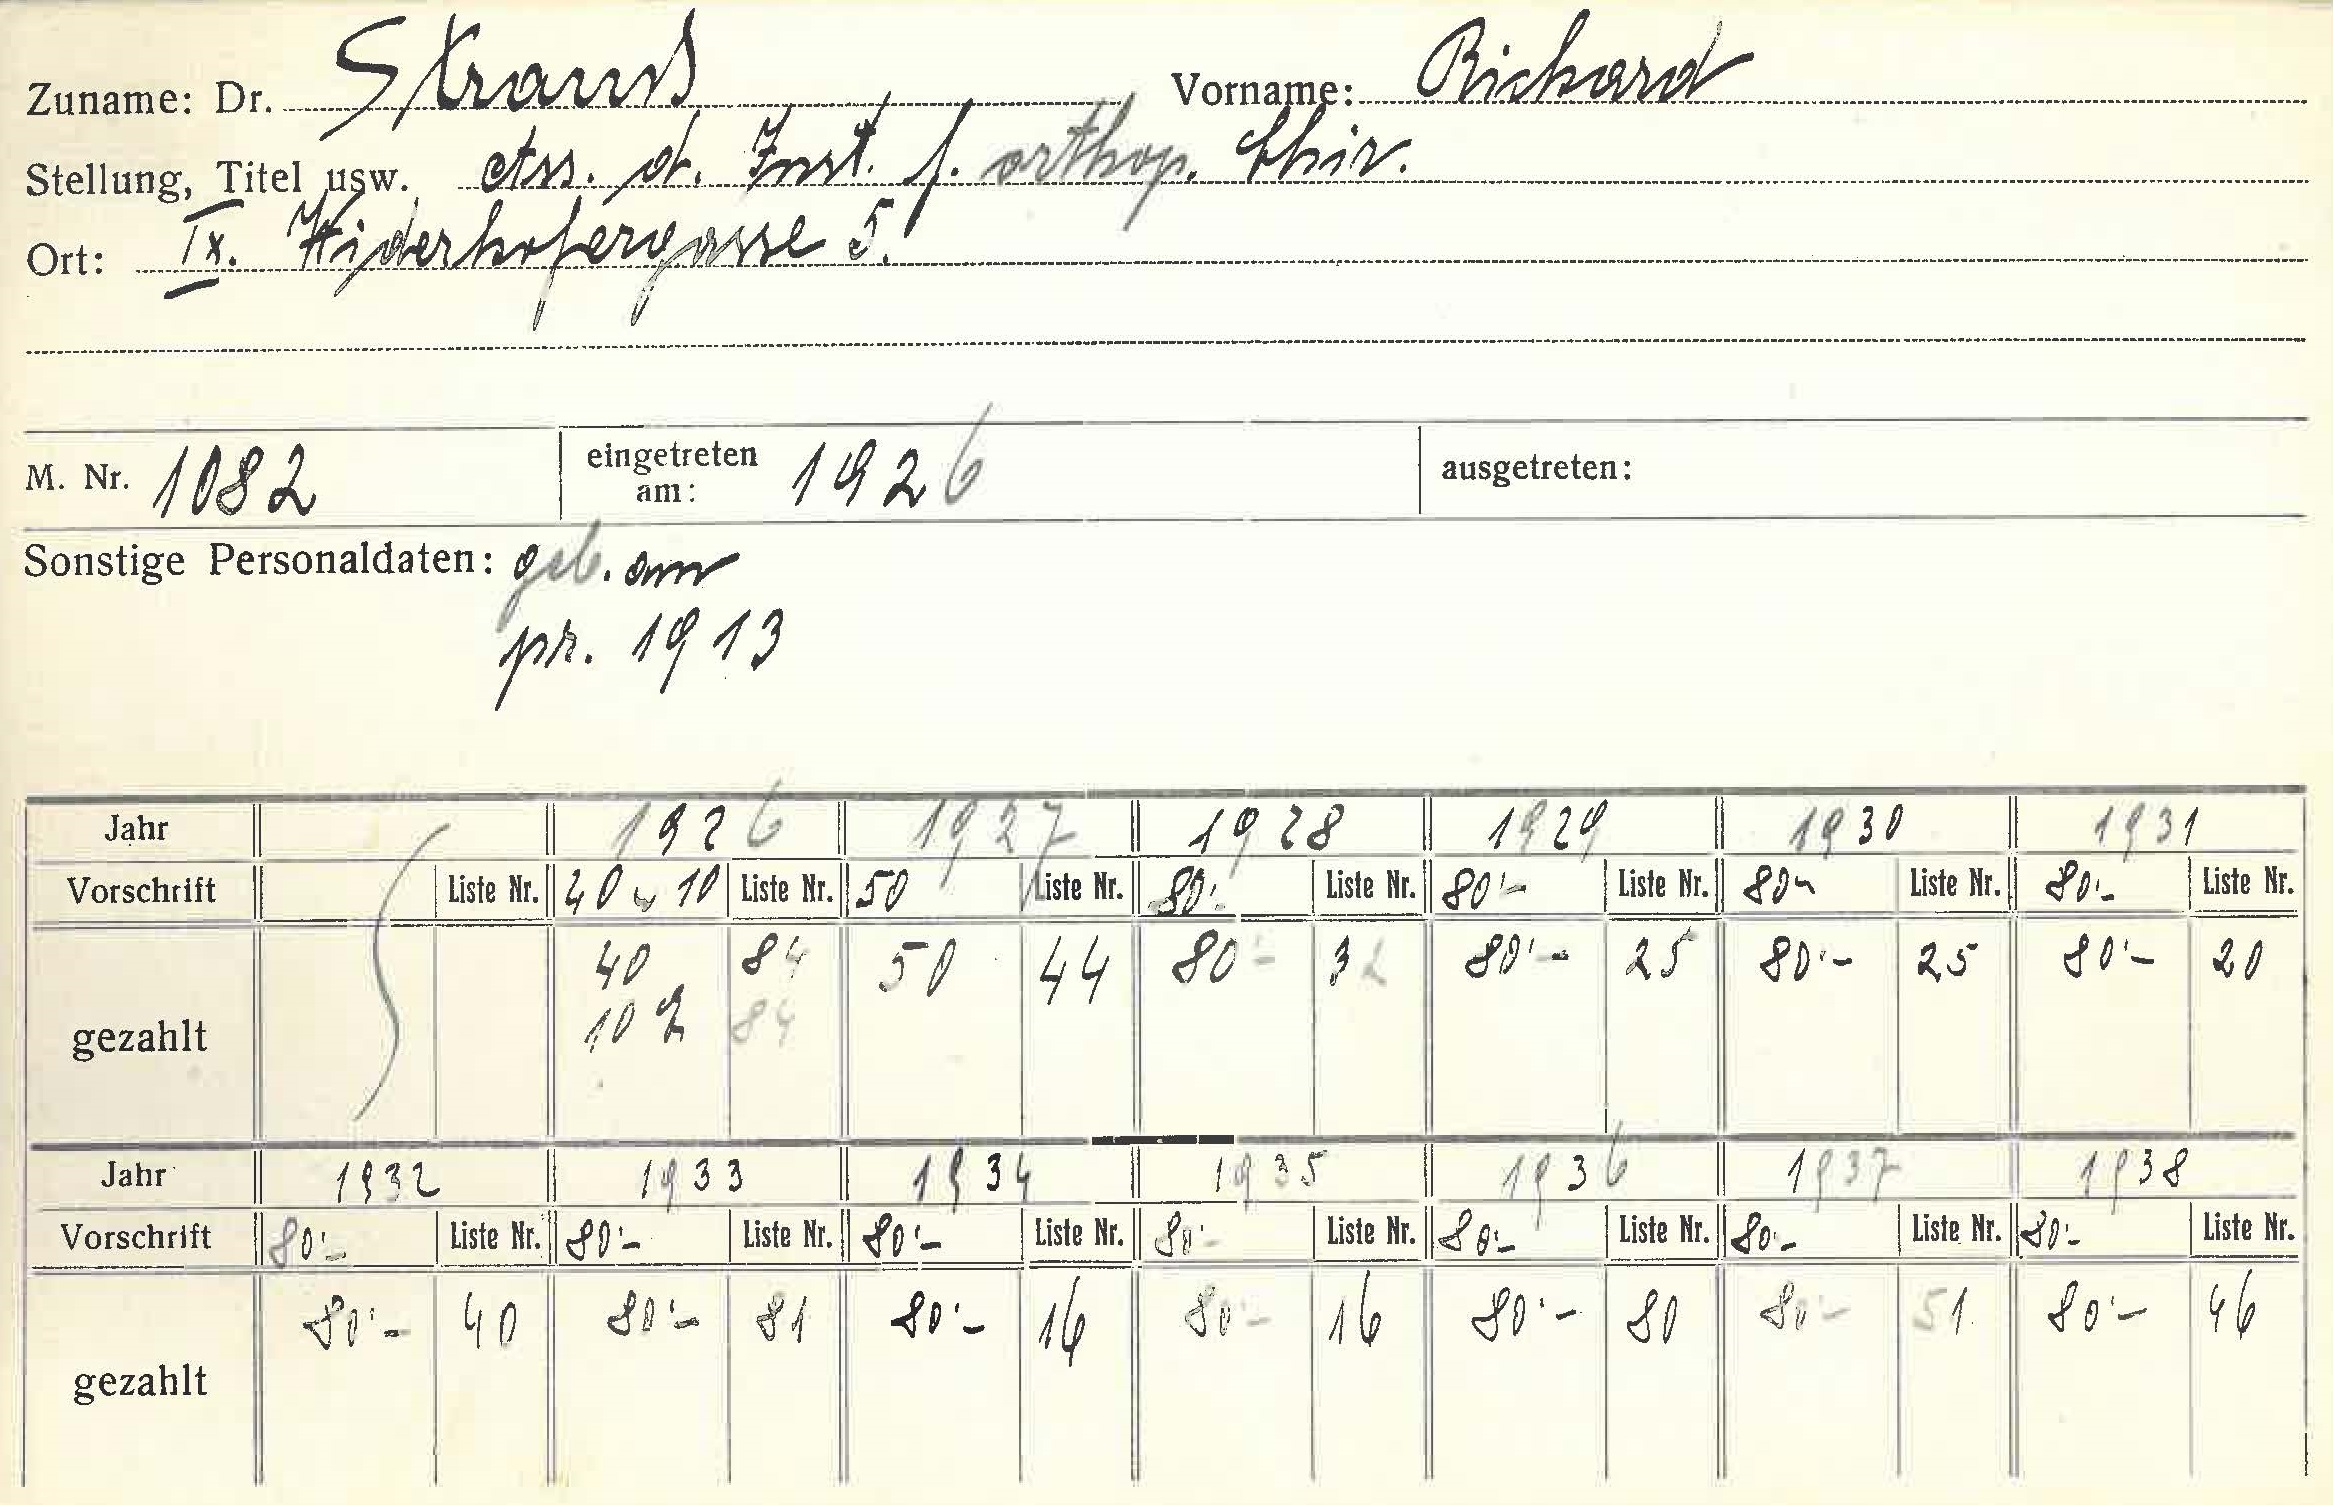 Zuname: Dr. Strauss Vorname: Richard
Stellung, Titel usw. Ass. d. Inst. f. orthop. Chir.
Ort: IX. Widerhofergasse 5.
M. Nr. 1082 eingetreten am: 1926 ausgetreten:
Sonstige Personaldaten: geb. am
pr. 1913
Jahr 1926 1927 1928 1929 1930 1931
Vorschrift Liste Nr. 40 u 10 Liste Nr. 50 Liste Nr. 80'- Liste Nr. 80'- Liste Nr. 80'- Liste Nr. 80'- Liste Nr.
gezahlt 40 84 50 44 80'- 32 80'- 25 80'- 25 80'- 20
10 84
Jahr 1932 1933 1934 1935 1936 1937 1938
Vorschrift 80'- Liste Nr. 80'- Liste Nr. 80'- Liste Nr. 80'- Liste Nr. 80'- Liste Nr. 80'- Liste Nr. 80'- Liste Nr.
gezahlt 80'- 40 80'- 81 80'- 16 80'- 16 80'- 80 80'- 51 80'- 46